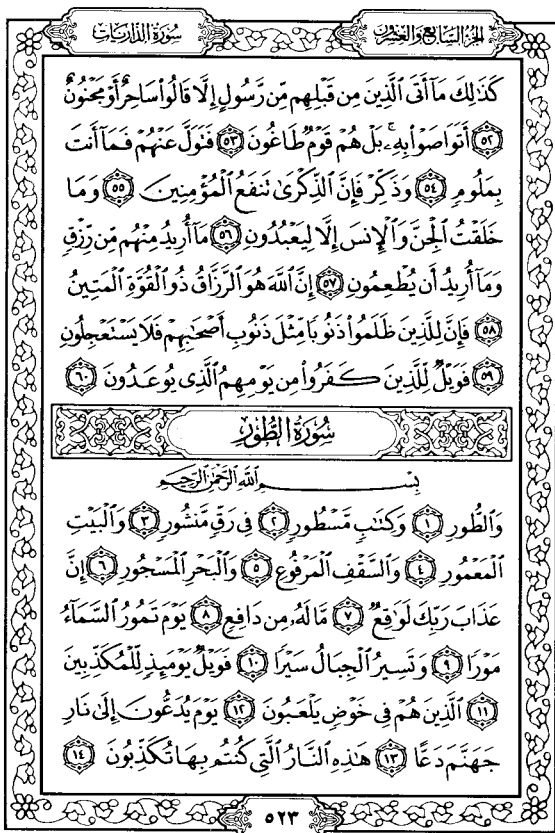 سُورَةُ الذَّارِيَاتِ
الجُزْءُ السَّابِعُ وَالعِشْرُونَ
كَذَٰلِكَ مَآ أَتَى ٱلَّذِينَ مِن قَبْلِهِم مِّن رَّسُولٍ إِلَّا قَالُواْ سَاحِرٌ أَوْ مَجْنُونٌ
٥٢ أَتَوَاصَوْاْ بِهِۦ ۚ بَلْ هُمْ قَوْمٌ طَاغُونَ ٥٣ فَتَوَلَّ عَنْهُمْ فَمَآ أَنتَ
بِمَلُومٍ ٥٤ وَذَكِّرْ فَإِنَّ ٱلذِّكْرَىٰ تَنفَعُ ٱلْمُؤْمِنِينَ ٥٥ وَمَا
خَلَقْتُ ٱلْجِنَّ وَٱلْإِنسَ إِلَّا لِيَعْبُدُونِ ٥٦ مَآ أُرِيدُ مِنْهُم مِّن رِّزْقٍ
وَمَآ أُرِيدُ أَن يُطْعِمُونِ ٥٧ إِنَّ ٱللَّهَ هُوَ ٱلرَّزَّاقُ ذُو ٱلْقُوَّةِ ٱلْمَتِينُ
٥٨ فَإِنَّ لِلَّذِينَ ظَلَمُواْ ذَنُوبًا مِّثْلَ ذَنُوبِ أَصْحَٰبِهِمْ فَلَا يَسْتَعْجِلُونِ
٥٩ فَوَيْلٌ لِّلَّذِينَ كَفَرُواْ مِن يَوْمِهِمُ ٱلَّذِى يُوعَدُونَ ٦٠
سُورَةُ الطُّورِ
بِسْمِ ٱللَّهِ ٱلرَّحْمَٰنِ ٱلرَّحِيمِ
وَٱلطُّورِ ١ وَكِتَٰبٍ مَّسْطُورٍ ٢ فِى رَقٍّ مَّنشُورٍ ٣ وَٱلْبَيْتِ
ٱلْمَعْمُورِ ٤ وَٱلسَّقْفِ ٱلْمَرْفُوعِ ٥ وَٱلْبَحْرِ ٱلْمَسْجُورِ ٦ إِنَّ
عَذَابَ رَبِّكَ لَوَٰقِعٌ ٧ مَّا لَهُۥ مِن دَافِعٍ ٨ يَوْمَ تَمُورُ ٱلسَّمَآءُ
مَوْرًا ٩ وَتَسِيرُ ٱلْجِبَالُ سَيْرًا ١٠ فَوَيْلٌ يَوْمَئِذٍ لِّلْمُكَذِّبِينَ
١١ ٱلَّذِينَ هُمْ فِى خَوْضٍ يَلْعَبُونَ ١٢ يَوْمَ يُدَعُّونَ إِلَىٰ نَارِ
جَهَنَّمَ دَعًّا ١٣ هَٰذِهِ ٱلنَّارُ ٱلَّتِى كُنتُم بِهَا تُكَذِّبُونَ ١٤
٥٢٣